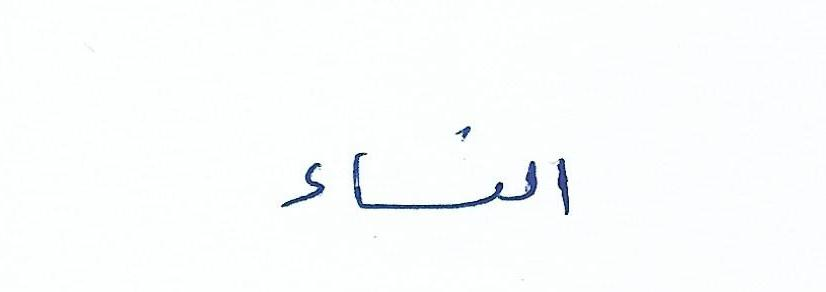 النساء